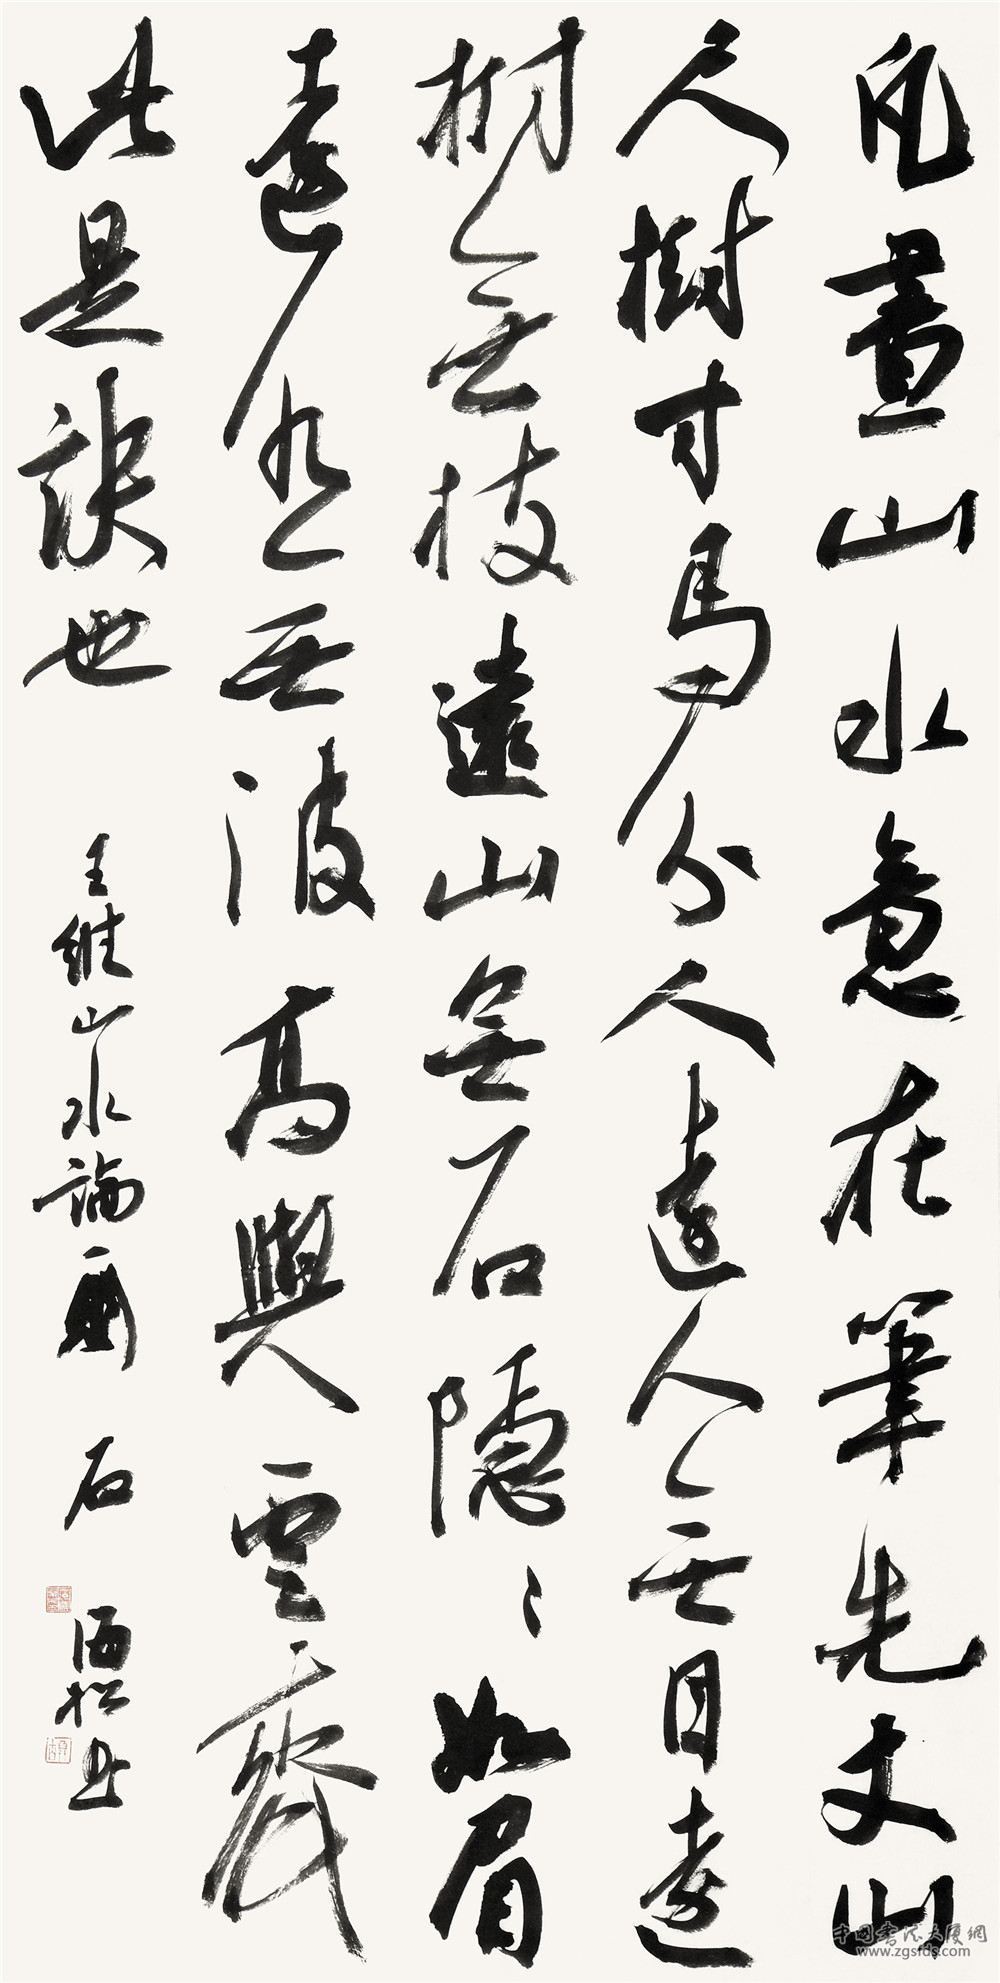 凡畫山水意在筆先丈山
尺樹寸馬分人遠人无目遠
樹無枝遠山無石隱〻如眉
遠水无波高與雲齊
此是訣也
王維山水論一則 石海松書
中國書法大廈網
www.zgsfds.com